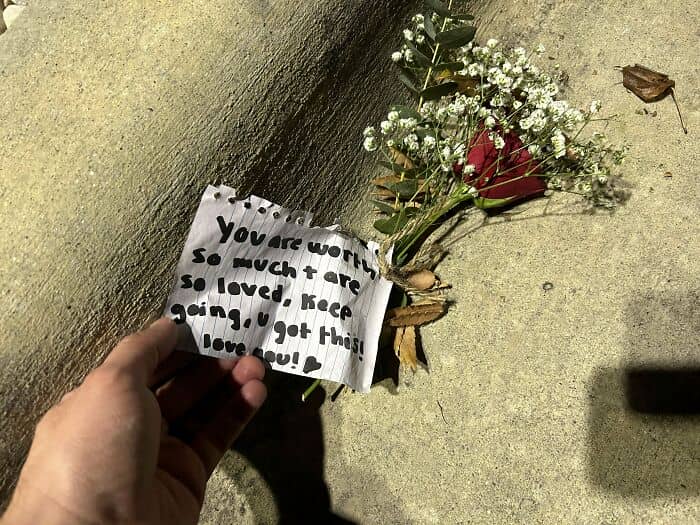 You are worth
so much + are
so loved. Keep
going, u got this!
love you! ♥